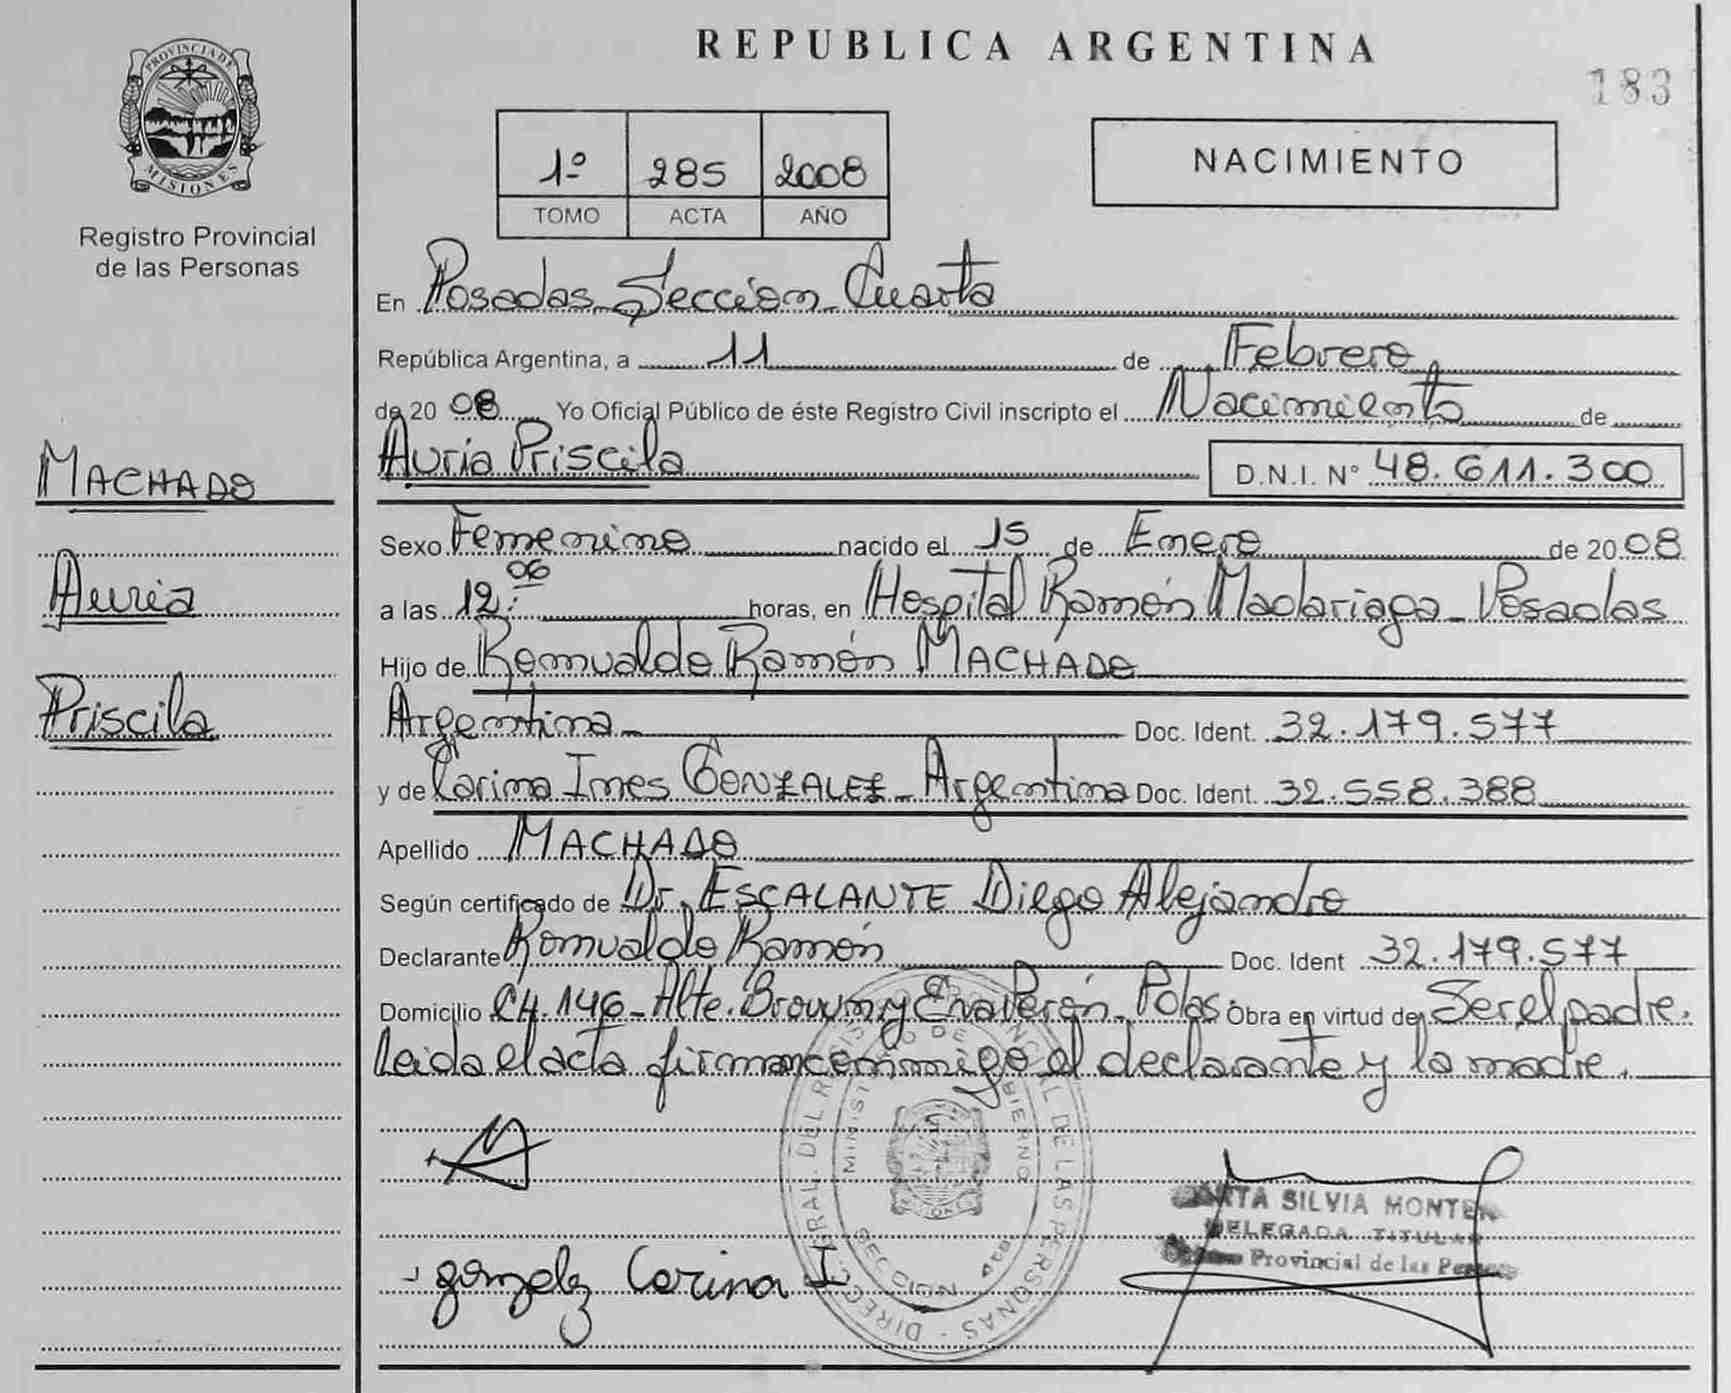 REPUBLICA ARGENTINA
183
PROVINCIA DE
MISIONES
Registro Provincial
de las Personas
1º 285 2008
TOMO ACTA AÑO
NACIMIENTO
En Posadas Seccion Cuarta
República Argentina, a 11 de Febrero
de 20 08 Yo Oficial Público de éste Registro Civil inscripto el Nacimiento de
Auria Priscila D.N.I. N° 48.611.300
MACHADO
Auria
Priscila
Sexo Femenino nacido el 15 de Enero de 20 08
a las 12:06 horas, en Hospital Ramón Madariaga - Posadas
Hijo de Romualdo Ramón MACHADO
Argentina - Doc. Ident. 32.179.577
y de Carina Ines GONZALEZ - Argentina Doc. Ident. 32.558.388
Apellido MACHADO
Según certificado de Dr. ESCALANTE Diego Alejandro
Declarante Romualdo Ramón Doc. Ident 32.179.577
Domicilio CH. 146 - Alte. Brown y Eva Perón - Pdas. Obra en virtud de Ser el padre.
Leida el acta firman conmigo el declarante y la madre.
DIREC. GRAL. DEL REGISTRO PROVINCIAL DE LAS PERSONAS
SECCION 4ta
SILVIA
DELEGADA TITULAR
Provincial de las
gonzalez Carina I